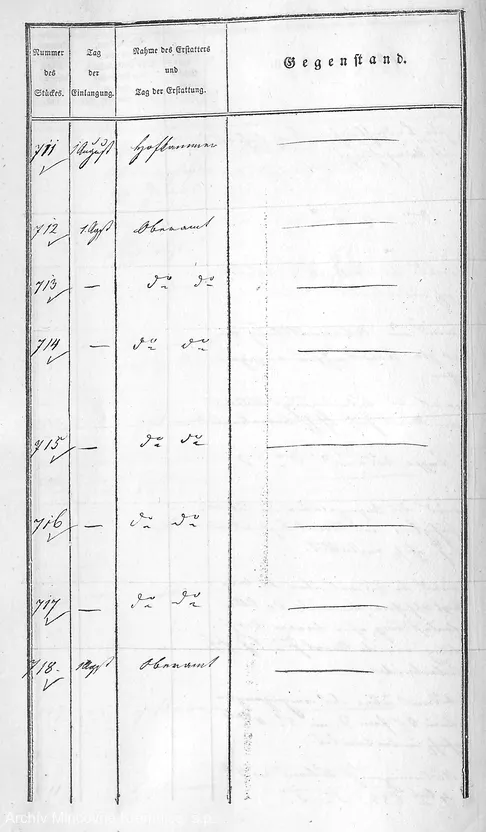 Nummer
des
Stückes.
Tag
der
Einlangung.
Nahme des Erstatters
und
Tag der Erstattung.
Gegenstand.
711 1 August Hofkammer —
712 1. Augst Oberamt —
713 — do do —
714 — do do —
715 — do do —
716 — do do —
717 — do do —
718. 1 Augst Oberamt —